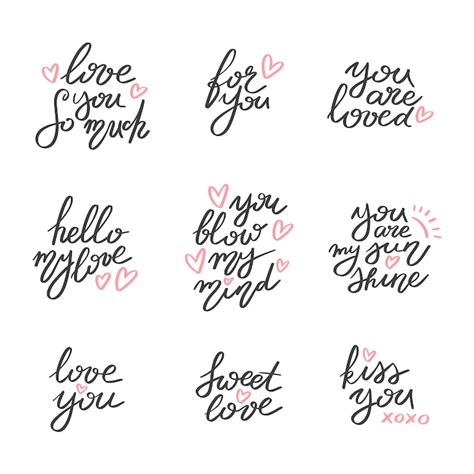 love
you
so much
for
you
you
are
loved
hello
my love
you
blow
my
mind
you
are
my sun
shine
love
you
sweet
love
kiss
you
xoxo